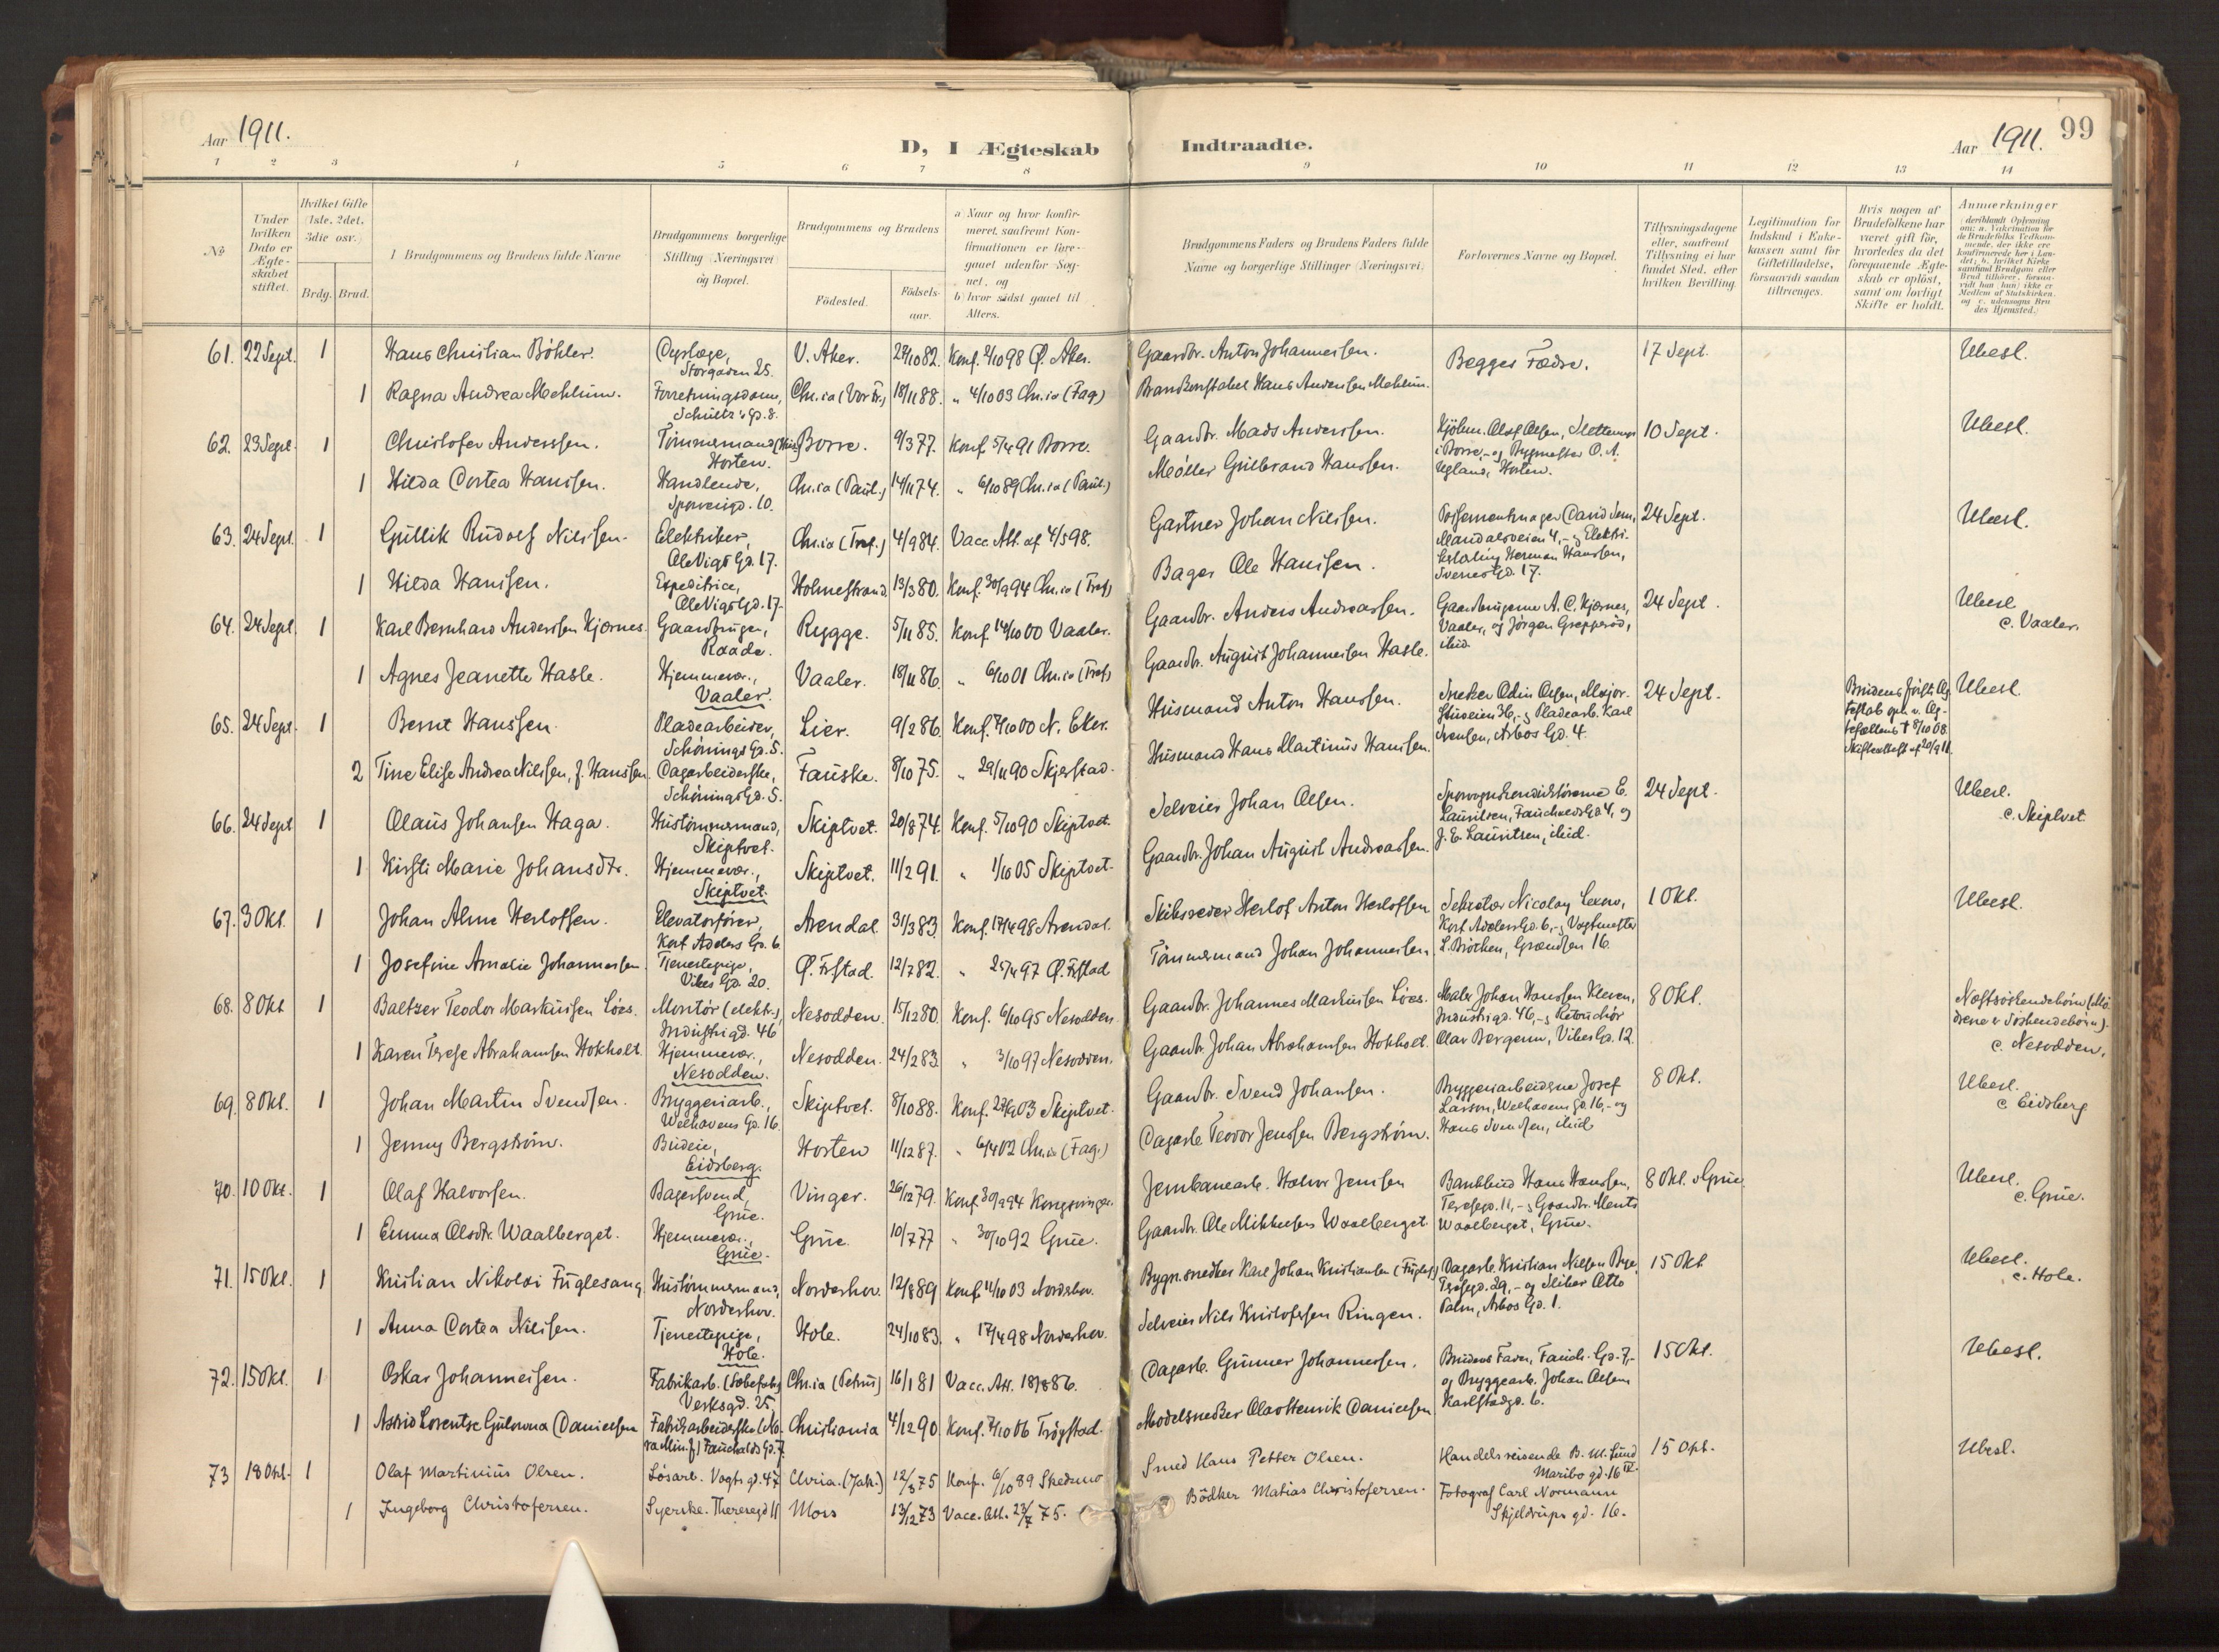 Aar 1911.
D, I Ægteskab Indtraadte.
Aar 1911.
99
1 2 3 4 5 6 7 8 9 10 11 12 13 14
No
Under hvilken Dato er Ægteskabet stiftet.
Hvilket Gifte (1ste, 2det, 3die osv.)
Brdg. Brud.
Brudgommens og Brudens fulde Navne
Brudgommens borgerlige Stilling (Næringsvei) og Bopæl.
Brudgommens og Brudens
Födested.
Födselsaar.
a) Naar og hvor konfirmeret, saafremt Konfirmationen er foregaaet udenfor Sognet, og
b) hvor sidst gaaet til Alters.
Brudgommens Faders og Brudens Faders fulde Navne og borgerlige Stillinger (Næringsvei)
Forlovernes Navne og Bopæl.
Tillysningsdagene eller, saafremt Tillysning ei har fundet Sted, efter hvilken Bevilling.
Legitimation for Indskud i Enkekassen samt for Giftetilladelse, forsaavidt saadan tiltrænges.
Hvis nogen af Brudefolkene har været gift för, hvorledes da det foregaaende Ægteskab er oplöst, samt om lovligt Skifte er holdt.
Anmærkninger
61. 22 Sept. 1 Hans Christian Böhler. Dyrlæge, Storgaden 25. V. Aker. 82. Konf. 2/10 98 Ø. Aker. Gaardbr. Anton Johannessen. Begges Fædre. 17 Sept. Ubesl.
1 Ragna Andrea Mehlum. Forretningsdame, Schultz's Gd. 8. Chr.ia (Vor Fr.) 18/11 88. " 4/10 03 Chr.ia (Fag.) Brandkonstabel Hans Andersen Mehlum.
62. 23 Sept. 1 Christofer Anderssen. Tömmermand Horten. Borre. 9/3 77. Konf. 5/4 91 Borre. Gaardbr. Mads Anderssen. Kjöbm. Olaf Olsen, i Borre, og Bygmester O. A. Ugland, Horten. 10 Sept. Ubesl.
1 Hilda Dortea Hanssen. Handlende, Sporveisgd. 10. Chr.ia (Paul.) 14/11 74. " 6/10 89 Chr.ia (Paul.) Möller Gulbrand Hanssen.
63. 24 Sept. 1 Gullik Rudolf Nilssen. Elektriker, Ole Vigs Gd. 17. Chr.ia (Tref.) 4/9 84. Vacc. Att. af 4/5 98. Gartner Johan Nilssen. David Mandalsveien 4, og Herman Hanssen, Gd. 17. 24 Sept. Ubesl.
1 Hilda Hanssen. Expeditrice, Ole Vigs Gd. 17. Holmestrand. 13/3 80. Konf. 30/9 94 Chr.ia (Tref.) Bager Ole Hanssen.
64. 24 Sept. 1 Karl Bernhard Anderssen Kjærnes. Gaardbruger, Raade. Rygge. 5/11 85. Konf. 14/10 00 Vaaler. Gaardbr. Anders Andreassen. Gaardbrugerne A. C. Kjærnes, Vaaler, og Jörgen Grepperöd, ibid. 24 Sept. Ubesl. c. Vaaler.
1 Agnes Jeanette Hasle. Hjemmevær., Vaaler. Vaaler. 18/11 86. " 6/10 01 Chr.ia (Tref.) Gaardbr. August Johannessen Hasle.
65. 24 Sept. 1 Bernt Hanssen. Pladearbeider, Schönings Gd. 5. Lier. 9/2 86. Konf. 7/10 00 N. Eker. Husmand Anton Hanssen. Snekker Odin Olsen, 36, og Pladearb. Karl Svensen, Arbos Gd. 4. 24 Sept. Ubesl.
2 Tine Elise Andrea Nilssen, f. Hanssen. Dagarbeiderske, Schönings Gd. 5. Fauske. 8/10 75. " 29/11 90 Skjerstad. Husmand Hans Martinus Hanssen.
66. 24 Sept. 1 Olaus Johansen Haga. Hustömmermand, Skiptvet. Skiptvet. 20/8 74. Konf. 5/10 90 Skiptvet. Selveier Johan Olsen. E. Lauritsen, Fauchalds Gd. 4, og J. E. Lauritsen, ibid. 24 Sept. Ubesl. c. Skiptvet
1 Kirsti Marie Johansdtr. Hjemmevær., Skiptvet. Skiptvet. 11/2 91. " 1/10 05 Skiptvet. Gaardbr. Johan August Andreassen.
67. 3 Okt. 1 Johan Alme Herlofsen. Elevatorförer, Kort Adelers Gd. 6. Arendal. 31/3 83. Konf. 17/4 98 Arendal. Skibsreder Herlof Anton Herlofsen. Sekretær Nicolay Kort Adelers Gd. 6, og Vagtmester Grændsen 16. 1 Okt. Ubesl.
1 Josefine Amalie Johannessen. Tjenestepige, Vibes Gd. 20. Ø. Frstad. 12/7 82. " 25/4 97 Ø. Frstad. Tömmermand Johan Johannessen.
68. 8 Okt. 1 Baltzer Teodor Markussen Löes. Montör (elektr.), Industrigd. 46. Nesodden. 15/12 80. Konf. 6/10 95 Nesodden. Gaardbr. Johannes Markussen Löes. Maler Johan Hanssen Kleven, Industrigd. 46, og Retouchör Olav Bergem, Vibes Gd. 12. 8 Okt. Næstsöskendebörn (Mödrene er Söskendebörn). c. Nesodden.
1 Karen Terese Abrahamsen Hokholt. Hjemmevær., Nesodden. Nesodden. 24/2 83. " 3/10 97 Nesodden. Gaardbr. Johan Abrahamsen Hokholt.
69. 8 Okt. 1 Johan Martin Svendsen. Bryggeriarb., Welhavens Gd. 16. Skiptvet. 8/10 88. Konf. 27/9 03 Skiptvet. Gaardbr. Svend Johansen. Bryggeriarbeiderne Josef Larsen, Welhavens Gd. 16, og Hans Svendsen, ibid. 8 Okt. Ubesl. c. Eidsberg
1 Jenny Bergström. Budeie, Eidsberg. Horten 11/12 87. " 6/4 02 Chr.ia (Fag.) Dagarb. Teodor Jenssen Bergström.
70. 10 Okt. 1 Olaf Halvorsen. Bagersvend, Grue. Vinger. 26/12 79. Konf. 30/9 94 Kongsvinger. Jernbanearb. Halvor Jensen Hans Hanssen, Teresegd. 11, og Gaardbr. Waalberget, Grue. 8 Okt. i Grue. Ubesl. c. Grue.
1 Emma Olsdtr. Waalberget. Hjemmevær., Grue. Grue. 10/7 77 " 30/10 92 Grue. Gaardbr. Ole Mikkelsen Waalberget.
71. 15 Okt. 1 Kristian Nikolai Fuglesang Hustömmermand, Norderhov. Norderhov. 12/8 89 Konf. 11/10 03 Norderhov. Bygn.snedker Karl Johan Kristiansen Dagarb. Kristian Nilssen Teresegd. 29, og Sliber Otto Palm, Arbos Gd. 1. 15 Okt. Ubesl. c. Hole.
1 Anna Dortea Nilssen. Tjenestepige, Hole. Hole. 24/10 83. " 17/4 98 Norderhov. Selveier Nils Kristofersen Ringen.
72. 15 Okt. 1 Oskar Johannessen. Fabrikarb. Verksgd. 25. Chr.ia (Petrus) 16/1 81 Vacc. Att. 18/8 86. Dagarb. Gunner Johannessen. Brudens Fader, Fauch. Gd. 7, og Bryggearb. Johan Olsen, Karlstadgd. 6. 15 Okt. Ubesl.
1 Astrid Lorentse Gulovna Danielsen Fabrikarbeiderske Fauchalds Gd. 7. Christiania 4/12 90. Konf. 7/10 06 Trögstad. Modelsnedker Olav Henrik Danielsen
73 18 Okt. 1 Olaf Martinius Olsen. Lösarb. Vogts gd. 47 Chria. (Jak.) 12/3 75 Konf. 6/10 89 Skedsmo Smed Hans Petter Olsen. Handelsreisende B. M. Lund Maribo gd. 16 IV. 15 Okt. Ubesl.
1 Ingeborg Christofersen. Syerske. Theresegd 11 Moss 13/12 73 Vacc. Att. 23/7 75. Bödker Matias Christofersen. Fotograf Carl Normann Skjeldrups gd. 16.